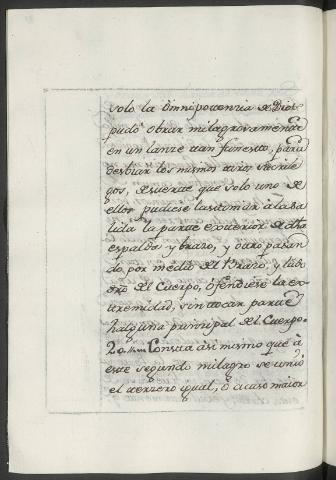 solo la Omnipotenzia de Dios
pudo obrar milagrosamente
en un lanze tan funesto, para
desbiar los mismos tiros, sacrile
gos, de suerte que solo uno de
ellos pudiese lastimar a la
la parte exterior de dha
espalda y brazo, y otro pasan
do por medio del Brazo, y
del Cuerpo ofendiese la ex
tremidad, sin tocar parte
halguna prinzipal del Cuerpo.
Consta asi mismo que à
este segundo milagro se unió
el terzero igual, ò acaso maior